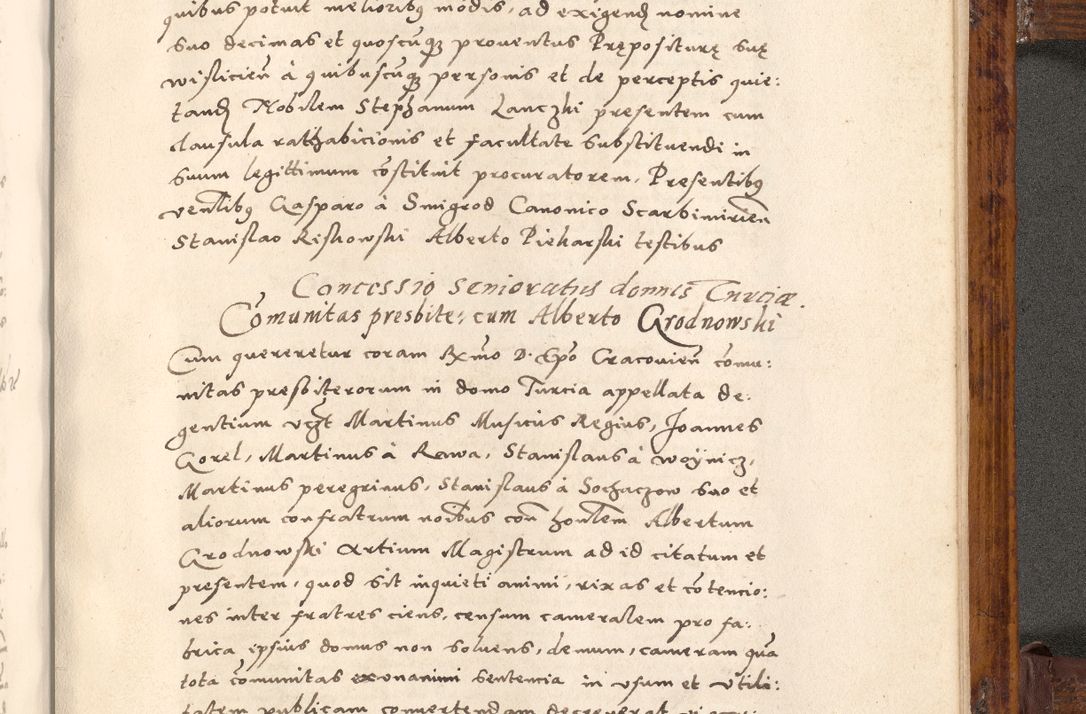 quibus potuit melioribꝰ modis, ad exigendꝭ nomine
suo decimas et quoscunqꝫ proventus Pręposituręsuę
wislicien̄ à quibuscunqꝫ personis et de perceptis quie:
tandꝭ Nobilem Stephanum Lanczki presentem cum
clausula rathabicionis et facultate substituendi in
suum legittimum cōstituit procuratorem, Presentibꝰ
venl̄ibꝰ Gasparo à Smigrod Canonico Scarbimirien̄
Stanislao Rishowski Alberto Piekarski testibus
Concessio senioratus domus Turciæ.
Cōmunitas presbite: cum Alberto Grodnowski
Cum quereretur coram Rx̄mo D. Ep̄o Cracovien̄ cōmu:
nitas presbiterorum in domo Turcia appellata de:
gentium vꝫt Martinus Musicus Regius, Joannes
Gorel, Martinus à Rawa, Stanislaus à Woynicz,
Martinus peregrinus, Stanislaus à Sochaczow suo et
aliorum confratrum noībus con̄ hon̄lem Albertum
Grodnowski Artium Magistrum ad id citatum et
presentem, quod sit inquieti animi, rixas et cōtencio:
nes inter fratres ciens, censum cameralem pro fa:
brica ipsius domus non solvens, demum, cameram quā
tota cōmunitas ex unanimi sentencia in usum et utili:
tatem publicam convertendam decreverat